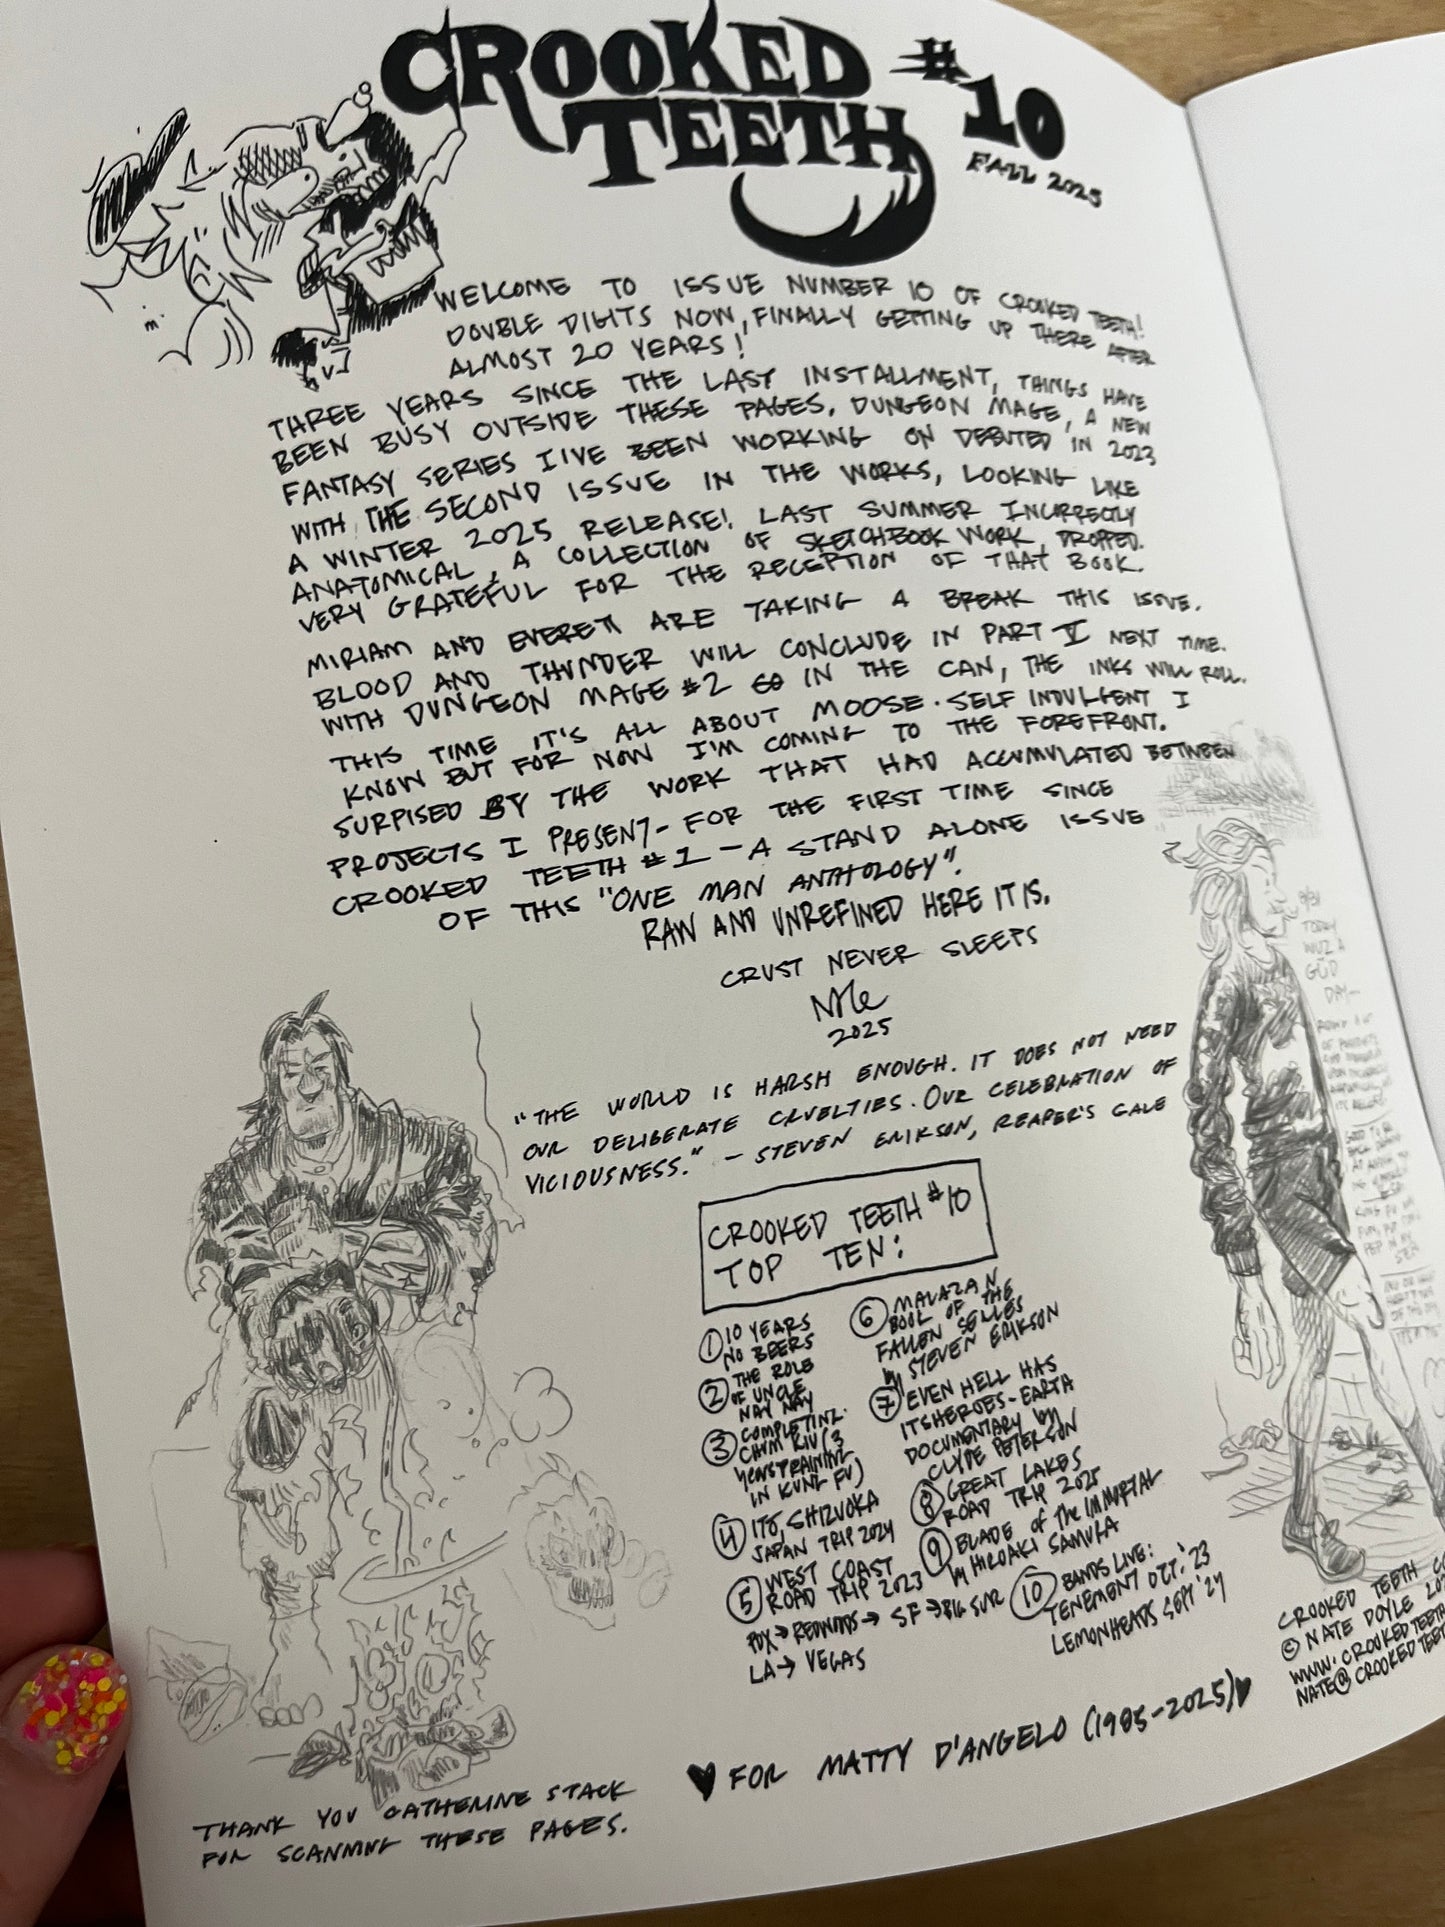 CROOKED
TEETH
#10
FALL 2025
WELCOME TO ISSUE NUMBER 10 OF CROOKED TEETH!
DOUBLE DIGITS NOW, FINALLY GETTING UP THERE AFTER
ALMOST 20 YEARS!
THREE YEARS SINCE THE LAST INSTALLMENT, THINGS HAVE
BEEN BUSY OUTSIDE THESE PAGES. DUNGEON MAGE, A NEW
FANTASY SERIES I'VE BEEN WORKING ON DEBUTED IN 2023
WITH THE SECOND ISSUE IN THE WORKS, LOOKING LIKE
A WINTER 2025 RELEASE! LAST SUMMER INCORRECTLY
ANATOMICAL, A COLLECTION OF SKETCHBOOK WORK, DROPPED.
VERY GRATEFUL FOR THE RECEPTION OF THAT BOOK.
MIRIAM AND EVERETT ARE TAKING A BREAK THIS ISSUE.
BLOOD AND THUNDER WILL CONCLUDE IN PART V NEXT TIME.
WITH DUNGEON MAGE #2 GO IN THE CAN, THE INKS WILL ROLL.
THIS TIME IT'S ALL ABOUT MOOSE. SELF INDULGENT I
KNOW BUT FOR NOW I'M COMING TO THE FOREFRONT.
SURPISED BY THE WORK THAT HAD ACCUMULATED BETWEEN
PROJECTS I PRESENT- FOR THE FIRST TIME SINCE
CROOKED TEETH #1 - A STAND ALONE ISSUE
OF THIS "ONE MAN ANTHOLOGY".
RAW AND UNREFINED HERE IT IS.
CRUST NEVER SLEEPS
2025
"THE WORLD IS HARSH ENOUGH. IT DOES NOT NEED
OUR DELIBERATE CRUELTIES. OUR CELEBRATION OF
VICIOUSNESS." - STEVEN ERIKSON, REAPER'S GALE
CROOKED TEETH #10
TOP TEN:
1 10 YEARS
NO BEERS
2 THE ROLE
OF UNCLE
NAY NAY
3 COMPLETING
CHUM KIU (3
YEARS TRAINING
IN KUNG FU)
4 ITO, SHIZUOKA
JAPAN TRIP 2024
5 WEST COAST
ROAD TRIP 2023
PDX → REDWOODS → SF → BIG SUR
LA → VEGAS
6 MALAZAN
BOOK OF THE
FALLEN SERIES
by STEVEN ERIKSON
7 EVEN HELL HAS
ITS HEROES - EARTH
DOCUMENTARY by
CLYDE PETERSON
8 GREAT LAKES
ROAD TRIP 2025
9 BLADE of The IMMORTAL
by HIROAKI SAMURA
10 BANDS LIVE:
TENEMENT OCT. '23
LEMONHEADS SEPT '24
♥ FOR MATTY D'ANGELO (1985-2025) ♥
THANK YOU CATHERINE STACK
FOR SCANNING THESE PAGES.
8/31
TODAY
WUZ A
GÜD
DAY—
CROOKED TEETH
© NATE DOYLE
WWW.CROOKEDTEETH
NATE@CROOKEDTEET